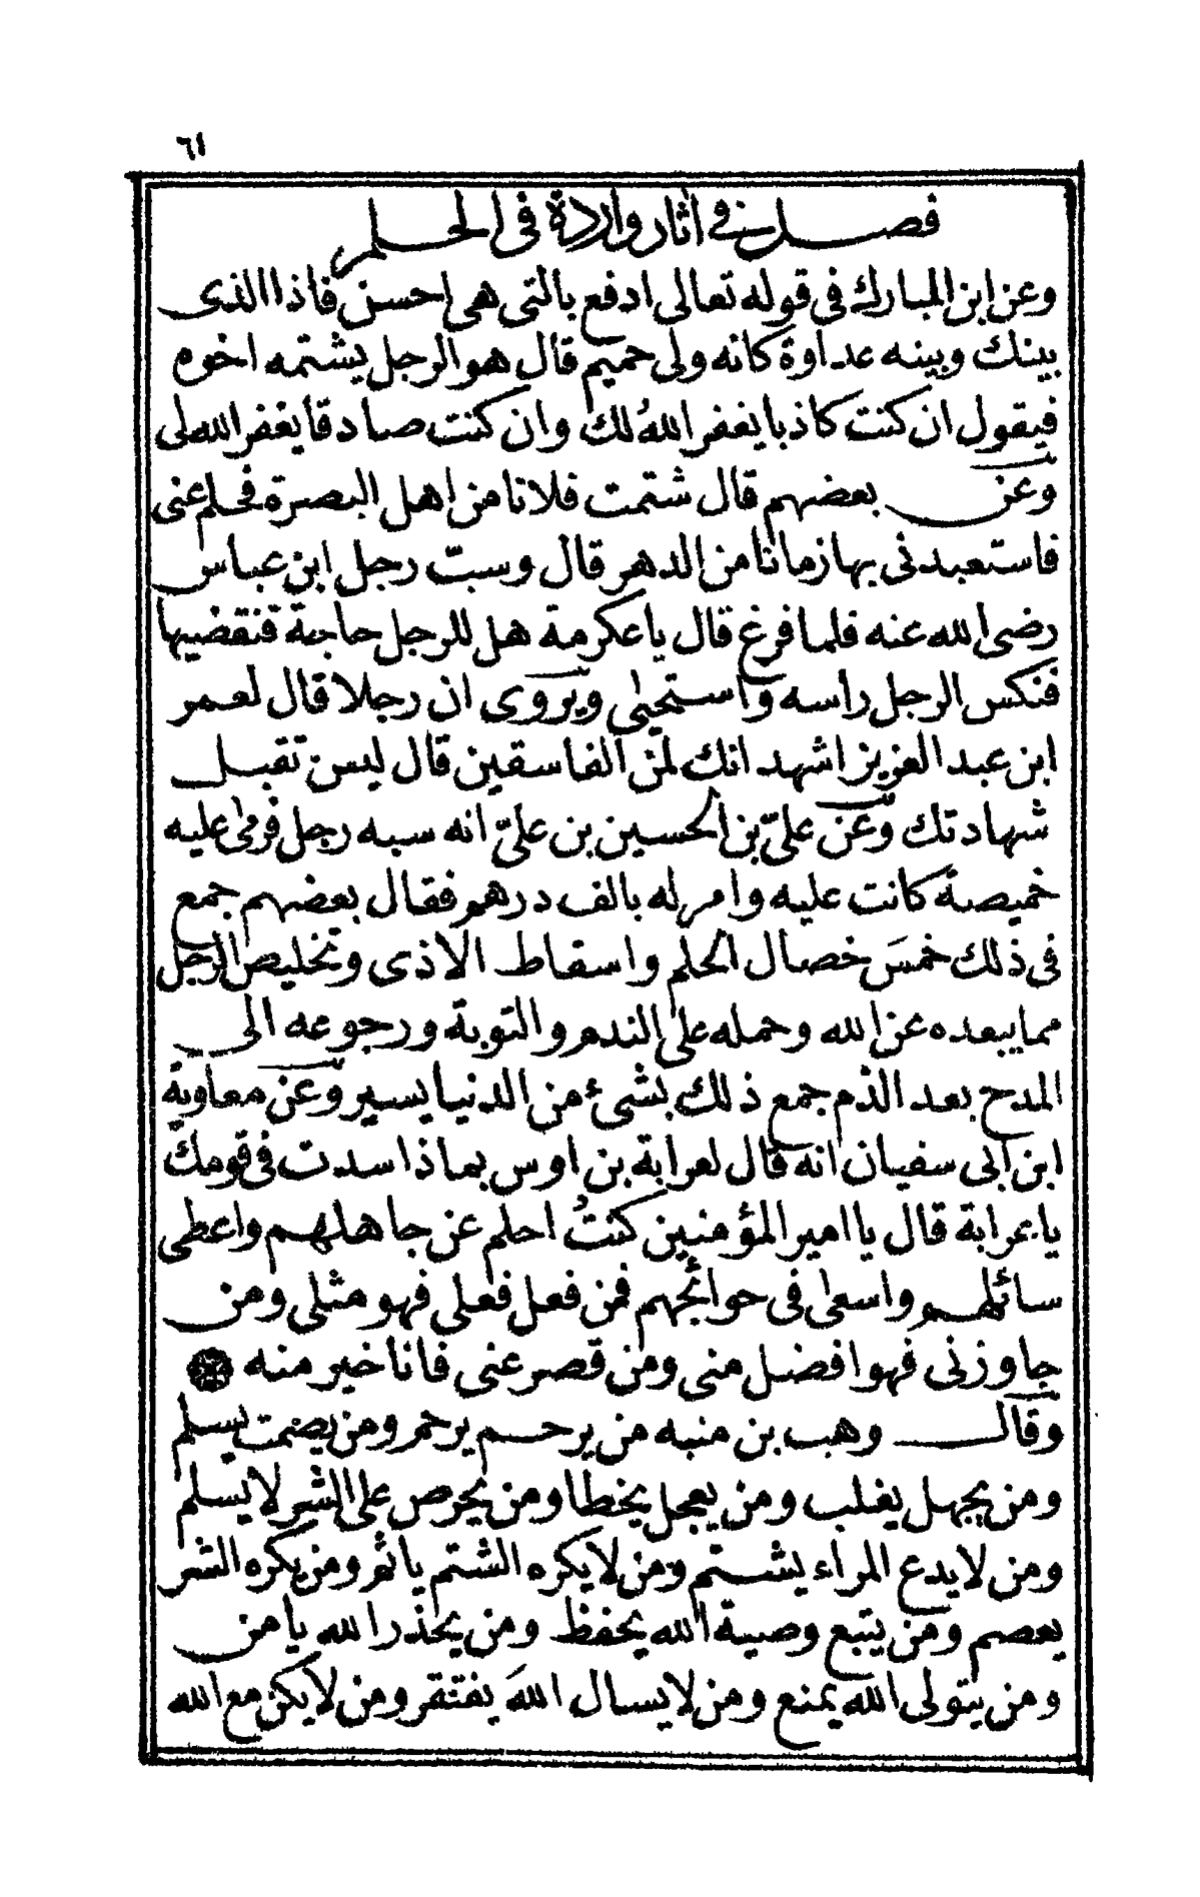 ٦١
فصل في اثار واردة في الحلم
وعن ابن المبارك في قوله تعالى ادفع بالتي هي احسن فاذا الذى
بينك وبينه عداوة كانه ولى حميم قال هو الرجل يشتمه اخوه
فيقول ان كنت كاذبا يغفر اللهُ لك وان كنت صادقا يغفر الله لى
وعن بعضهم قال شتمت فلانا من اهل البصرة فحلم عنى
فاستعبدنى بها زمانا من الدهر قال وسبّ رجل ابن عباس
رضى الله عنه فلما فرغ قال يا عكرمة هل للرجل حاجة فنقضيها
فنكس الرجل راسه واستحيى ويروى ان رجلا قال لعمر
ابن عبد العزيز اشهد انك لمن الفاسقين قال ليس تقبل
شهادتك وعن علىّ بن الحسين بن علىّ انه سبه رجل فرمى عليه
خميصة كانت عليه وامر له بالف درهم فقال بعضهم جمع
فى ذلك خمسَ خصال الحلم واسقاط الاذى وتخليص الرجل
مما يبعده عن الله وحمله على الندم والتوبة ورجوعه الى
المدح بعد الذم جمع ذلك بشئ من الدنيا يسير وعن معاوية
ابن ابى سفيان انه قال لعرابة بن اوس بماذا سدت فى قومك
يا عرابة قال يا امير المؤمنين كنتُ احلم عن جاهلهم واعطى
سائلهم واسعى فى حوائجهم فمن فعل فعلى فهو مثلى ومن
جاوزنى فهو افضل منى ومن قصر عنى فانا خير منه
وقال وهب بن منبه من يرحم يرحم ومن يصمت يسلم
ومن يجهل يغلب ومن يعجل يخطا ومن يحرص على الشر لا يسلم
ومن لا يدع المراء يشتم ومن لا يكره الشتم ياثم ومن يكره الشر
يعصم ومن يتبع وصية الله يحفظ ومن يحذر الله يا من
ومن يتولى الله يمنع ومن لا يسال اللهَ يفتقر ومن لا يكن مع الله